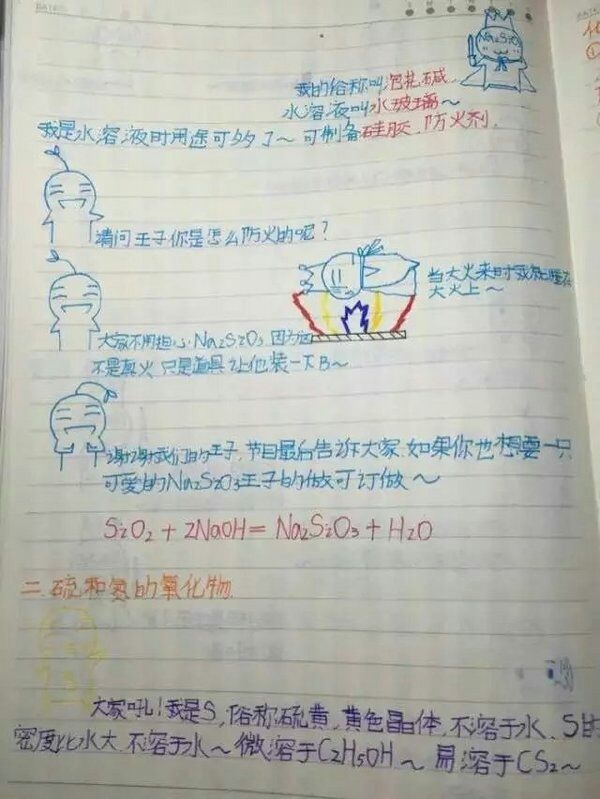 Na2SiO3
我的俗称叫泡花碱
水溶液叫水玻璃~
我是水溶液时用途可多了~可制备硅胶,防火剂.
请问王子你是怎么防火的呢?
当大火来时我就睡在
大火上~
大家不用担心Na2SiO3 因为这
不是真火 只是道具 让他装一下B~
谢谢我们的王子,节目最后告诉大家,如果你也想要一只
可爱的Na2SiO3王子的做可订做~
SiO2+2NaOH=Na2SiO3+H2O
二.硫和氮的氧化物
大家吼!我是S,俗称硫黄,黄色晶体,不溶于水.S的
密度比水大 不溶于水~微溶于C2H5OH~易溶于CS2~